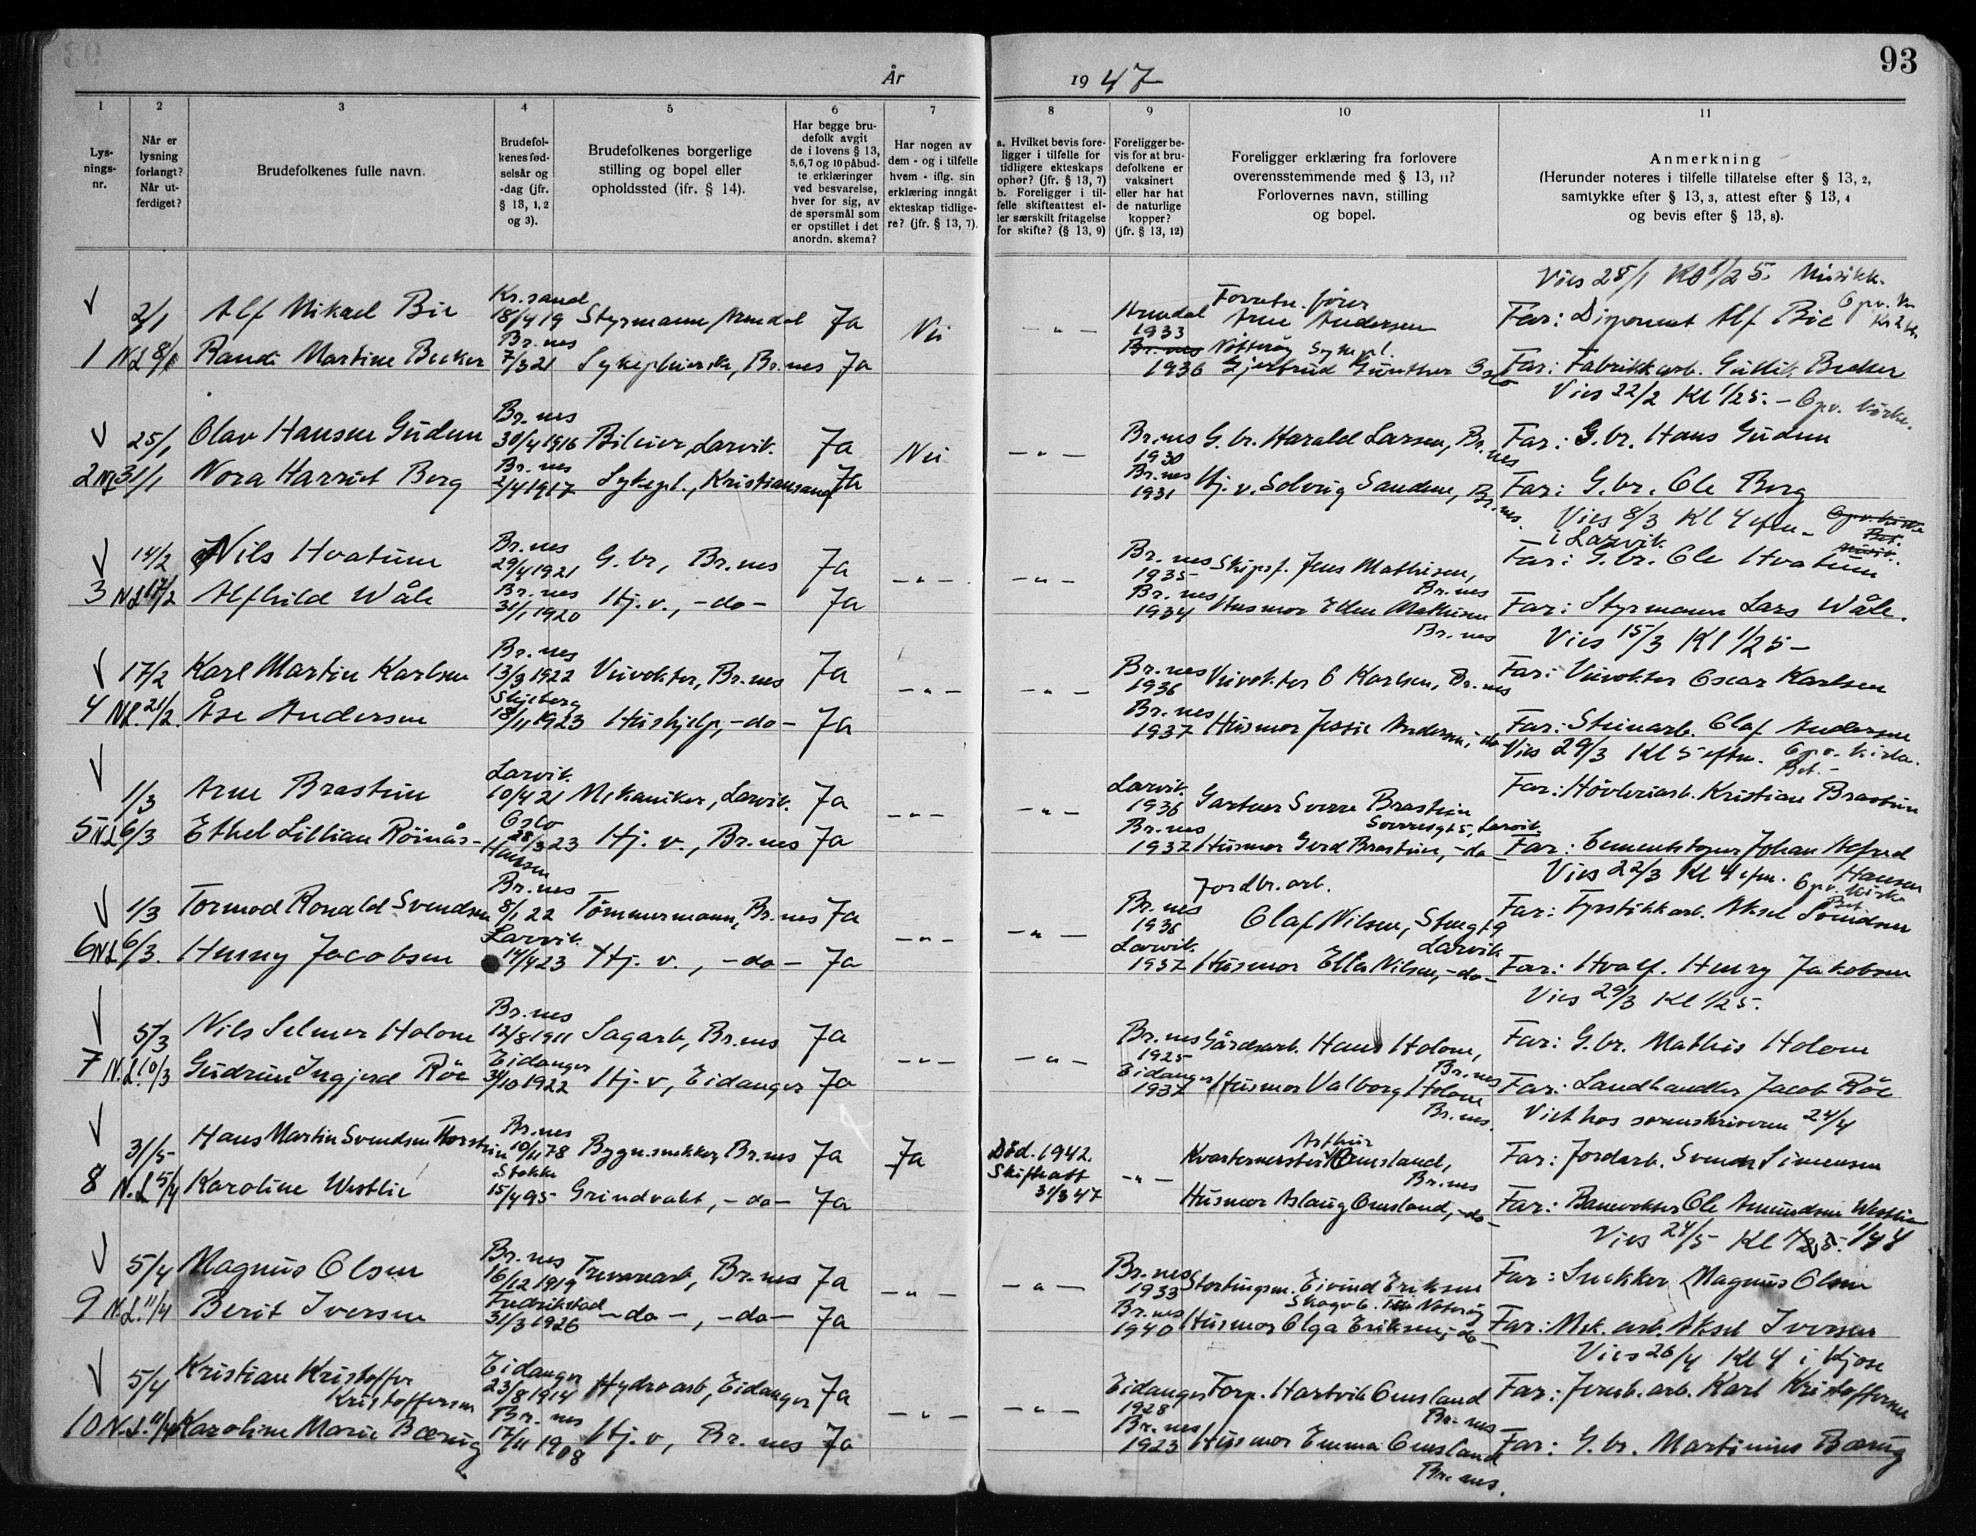 93
År 1947
1 2 3 4 5 6 7 8 9 10 11
Lys-
nings-
nr.
Når er
lysning
forlangt?
Når ut-
ferdiget?
Brudefolkenes fulle navn.
Brudefol-
kenes fød-
selsår og
-dag (jfr.
§ 13, 1, 2
og 3).
Brudefolkenes borgerlige
stilling og bopel eller
opholdssted (ifr. § 14).
Har begge bru-
defolk avgit
de i lovens § 13,
5,6,7 og 10 påbud-
te erklæringer
ved besvarelse,
hver for sig, av
de spørsmål som
er opstillet i det
anordn. skema?
Har nogen av
dem - og i tilfelle
hvem - iflg. sin
erklæring inngåt
ekteskap tidlige-
re? (jfr. § 13, 7).
a. Hvilket bevis fore-
ligger i tilfelle for
tidligere ekteskaps
ophør? (jfr. § 13, 7)
b. Foreligger i til-
felle skifteattest el-
ler særskilt fritagelse
for skifte? (§ 13, 9)
Foreligger be-
vis for at bru-
defolkene er
vaksinert
eller har hat
de naturlige
kopper?
(jfr. § 13, 12)
Foreligger erklæring fra forlovere
overensstemmende med § 13, 11?
Forlovernes navn, stilling
og bopel.
Anmerkning
(Herunder noteres i tilfelle tillatelse efter § 13, 2,
samtykke efter § 13, 3, attest efter § 13, 4
og bevis efter § 13, 8).
Vies 25/1 Kl 1/2 5. Musikk.
2/1 Alf Mikael Bie Kr.sand 18/4 19 Styrmann, Arendal Ja Nei - " - Arendal 1933 Forretn. fører Arne Andersen Far: Disponent Alf Bie
1 N.L 8/1 Randi Martine Becker Br.nes 7/3 21 Sykepleierske, Br.nes Ja 1936 Nøtterøy Sykepl. Gjertrud Günther Oslo Far: Fabrikkarb. Gullik Becker
Vies 22/2 Kl 1/2 5. - Opv. kirke.
25/1 Olav Hansen Gudem Br.nes 30/4 1916 Bileier, Larvik. Ja Nei - " - Br.nes 1930 G.br. Harald Larsen, Br.nes Far: G.br. Hans Gudem
2 N.L 31/1 Nora Harriet Berg Br.nes 2/4 1917 Sykepl., Kristiansand Ja Br.nes 1931 Hj.v. Solveig Sandene, Br.nes. Far: G.br. Ole Berg
Vies 8/3 Kl 4 efm. -
i Larvik.
14/2 Nils Hvatum Br.nes 29/4 1921 G.br, Br.nes Ja - " - - " - Br.nes 1935 Skipsf. Jens Mathisen, Br.nes Far: G.br. Ole Hvatum
3 N.L 17/2 Alfhild Wåle Br.nes 31/1 1920 Hj.v., -do- Ja Br.nes 1934 Husmor Ellen Mathisen Br.nes Far: Styrmann Lars Wåle.
Vies 15/3 Kl 1/2 5 -
17/2 Karl Martin Karlsen Br.nes 13/3 1922 Veivokter, Br.nes Ja - " - - " - Br.nes 1936 Veivokter O Karlsen, Br.nes Far: Veivokter Oscar Karlsen
4 N.L. 21/2. Åse Andersen Skjeberg 18/11 1923 Hushjelp, -do- Ja Br.nes 1937 Husmor Jessie Andersen, do Far: Steinarb. Olaf Andersen
Vies 29/3 Kl 5 eftm. Opv. kirke. Bet. -
1/3 Arne Brastein Larvik. 10/4 21 Mekaniker, Larvik. Ja - " - - " - Larvik. 1936 Gartner Sverre Brastein Sverresgt 5, Larvik. Far: Høvleriarb. Kristian Brastein
5 N.L 6/3 Ethel Lillian Röinås-Hansen Oslo 28/3 23 Hj. v., Br.nes Ja Br.nes 1937 Husmor Gerd Brastein, -do- Far: Cementstøper Johan Alfred Hansen
Vies 22/3 Kl 4 efm. Opv. kirke Bet.
1/3 Tormod Ronald Svendsen Br.nes 8/1 22 Tömmermann, Br.nes Ja - " - - " - Br.nes 1936 Jordbr.arb. Olaf Nilsen, Stengt 9 Larvik Far: Fyrstikkarb. Aksel Svendsen
6 N.L 6/3. Henny Jacobsen Larvik. 14/4 23 Hj. v., -do- Ja Larvik. 1937 Husmor Ella Nilsen, -do- Far: Hvalf. Henry Jakobsen
Vies 29/3 Kl 1/2 5.
5/3 Nils Selmer Holom Br.nes 12/8 1911 Sagarb, Br.nes Ja - " - - " - Br.nes 1925 Gårdsarb. Hans Holom, Br.nes Far: G.br. Mathis Holom
7 N.L. 10/3 Gudrun Ingjerd Röe Eidanger 31/10 1922 Hj.v, Eidanger Ja Eidanger 1937 Husmor Valborg Holom Br.nes. Far: Landhandler Jacob Röe
Viet hos sorenskriveren 24/4
31/5 Hans Martin Svendsen Torstein Br.nes 10/11 78 Bygn.snekker, Br.nes Ja Ja Död. 1942. Skifteatt 31/3 47 - " - Kvartermester Arthur Omsland, Br.nes Far: Jordarb. Svend Simensen
8 N.L 5/4 Karoline Westlie Stokke 15/4 95 Grindvakt, -do- Ja Husmor Aslaug Omsland, -do- Far: Banevokter Ole Amundsen Westlie
Vies 24/5 Kl
5/4 Magnus Olsen Br.nes 16/12 1919 Trevarearb, Br.nes Ja - " - - " - Br.nes 1933 Stortingsm. Eivind Eriksen Far: Snekker Magnus Olsen
9 N.L. 11/4 Berit Iversen Fredrikstad 31/3 1926 -do-, -do- Ja Br.nes 1940 Husmor Olga Eriksen, -do- Far: Mek. arb. Aksel Iversen
Vies 26/4 Kl 4 i Kjose
5/4 Kristian Kristoffer Kristoffersen Eidanger 23/8 1914 Hydroarb, Eidanger Ja - " - - " - Eidanger 1928 Torp. Hartvik Omsland Br.nes Far: Jernb.arb. Karl Kristoffersen
10 N.L. 11/4 Karoline Marie Bærug Br.nes 17/11 1908 Hj.v, Br.nes Ja Br.nes 1923 Husmor Emma Omsland Br.nes. Far: G.br. Martinius Bærug